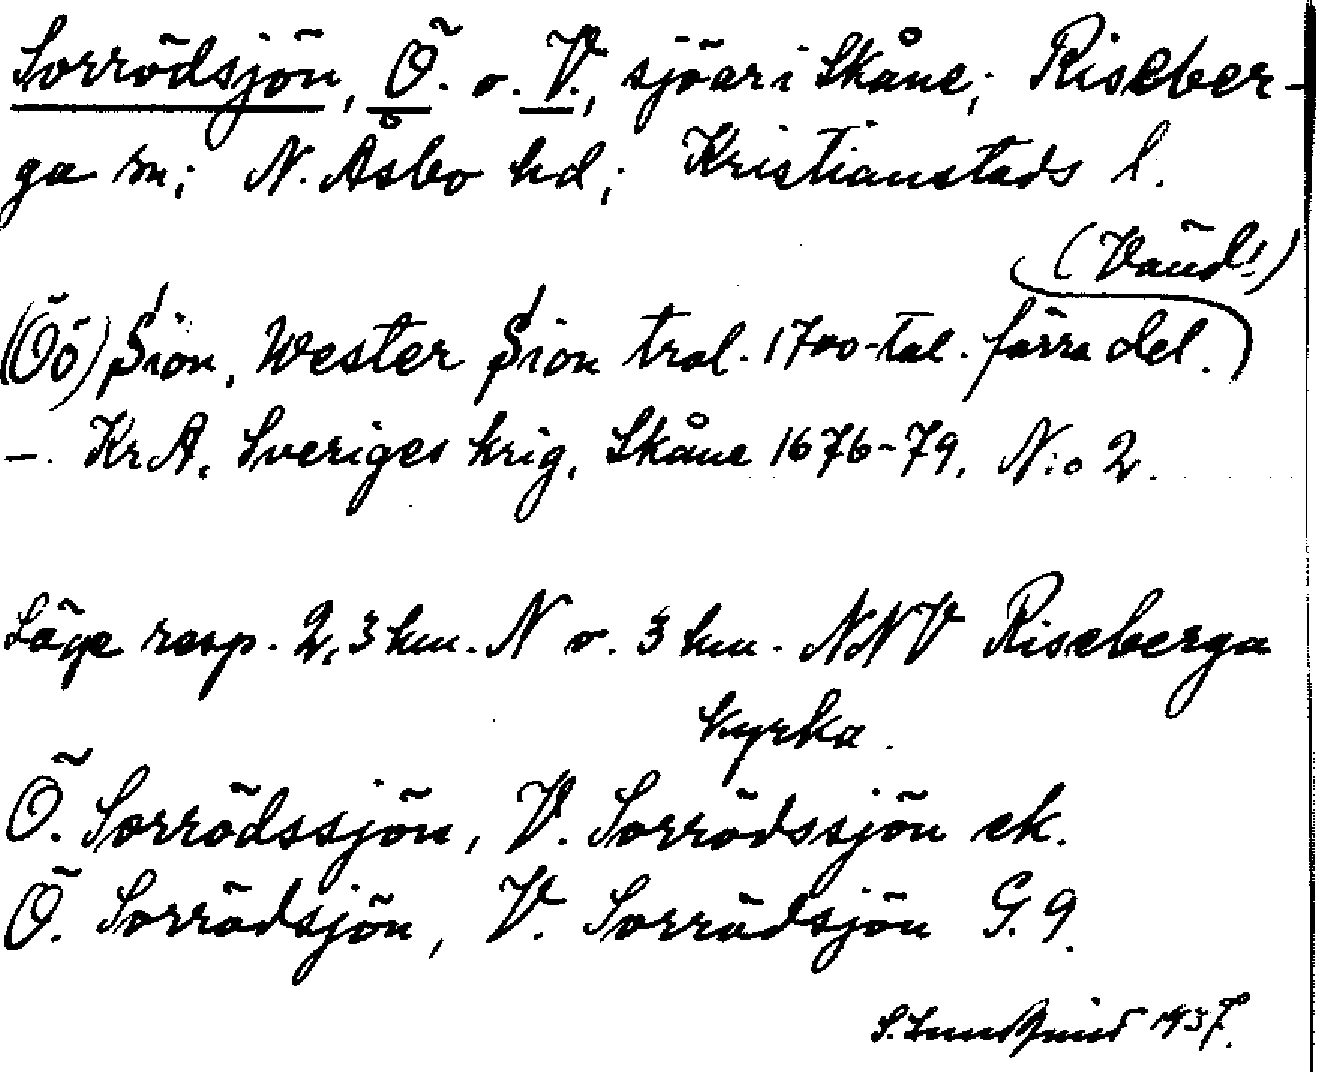 Sorrödsjön, Ö. o. V., sjöar i Skåne; Riseber-
ga sn; N. Åsbo hd; Kristianstads l.
(Vänd!)
(Öö) Siön, Wester Siön trol. 1700-tal. förra del.)
–. KrA, Sveriges krig, Skåne 1676-79, N:o 2.
Läge resp. 2,3 km. N o. 3 km. NNV Riseberga
kyrka.
Ö. Sorrödssjön, V. Sorrödssjön ek.
Ö. Sorrödsjön, V. Sorrödsjön G. 9.
1937.